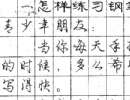 一、怎样练习钢
青少年朋友：
当你每天手
的时候，多么希
写得快。